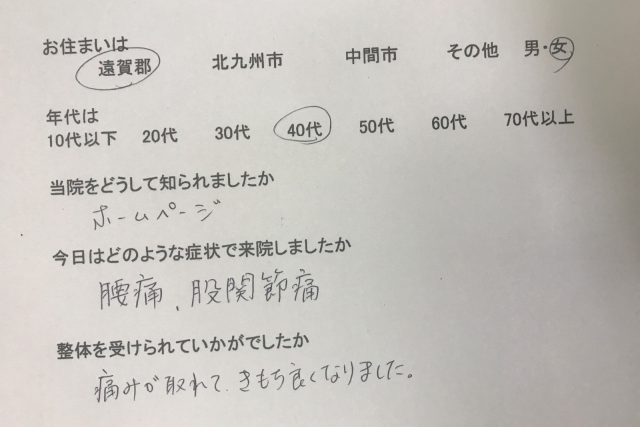 お住まいは
遠賀郡 北九州市 中間市 その他 男・女
年代は
10代以下 20代 30代 40代 50代 60代 70代以上
当院をどうして知られましたか
ホームページ
今日はどのような症状で来院しましたか
腰痛、股関節痛
整体を受けられていかがでしたか
痛みが取れて、きもち良くなりました。